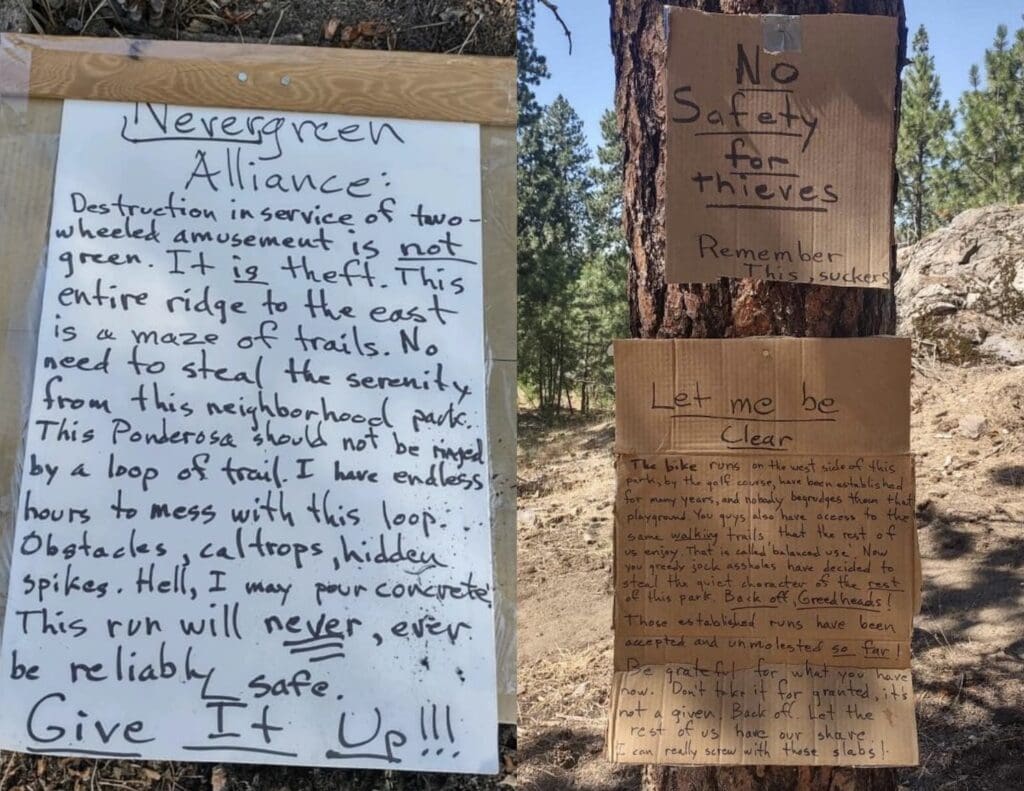 Nevergreen
Alliance:
Destruction in service of two-
wheeled amusement is not
green. It is theft. This
entire ridge to the east
is a maze of trails. No
need to steal the serenity
from this neighborhood park.
This Ponderosa should not be ringed
by a loop of trail. I have endless
hours to mess with this loop.
Obstacles, caltrops, hidden
spikes. Hell, I may pour concrete!
This run will never, ever
be reliably safe.
Give It Up!!!
No
Safety
for
thieves
Remember
This, suckers
Let me be
Clear
The bike runs on the west side of this
park, by the golf course, have been established
for many years, and nobody begrudges them that
playground. You guys also have access to the
same walking trails that the rest of
us enjoy. That is called 'balanced use'. Now
you greedy jock assholes have decided to
steal the quiet character of the rest
of this park. Back off, Greedheads!
Those established runs have been
accepted and unmolested so far!
Be grateful for what you have
now. Don't take it for granted, it's
not a given. Back off. Let the
rest of us have our share
I can really screw with those slabs!